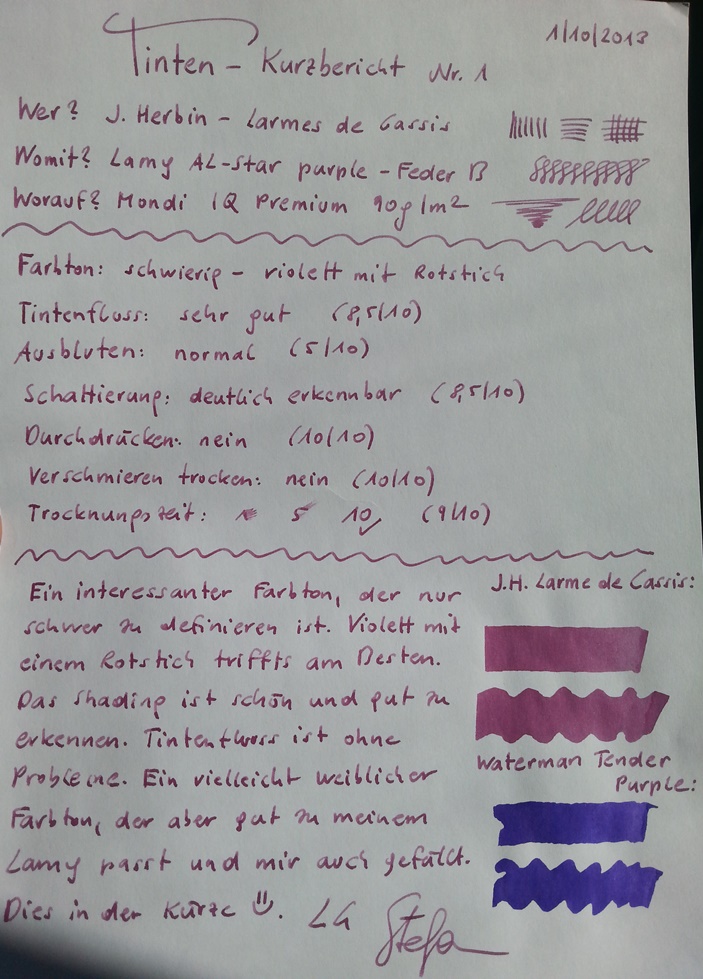 1/10/2013
Tinten - Kurzbericht Nr. 1
Wer? J. Herbin - Larmes de Cassis
Womit? Lamy AL-Star purple - Feder B
Worauf? Mondi IQ Premium 90g/m²
Farbton: schwierig - violett mit Rotstich
Tintenfluss: sehr gut (8,5/10)
Ausbluten: normal (5/10)
Schattierung: deutlich erkennbar (8,5/10)
Durchdrücken: nein (10/10)
Verschmieren trocken: nein (10/10)
Trocknungszeit: 5 10 ✓ (9/10)
Ein interessanter Farbton, der nur
schwer zu definieren ist. Violett mit
einem Rotstich triffts am Besten.
Das Shading ist schön und gut zu
erkennen. Tintenfluss ist ohne
Probleme. Ein vielleicht weiblicher
Farbton, der aber gut zu meinem
Lamy passt und mir auch gefällt.
Dies in der Kürze ☺. LG Stefan
J.H. Larme de Cassis:
Waterman Tender
Purple: